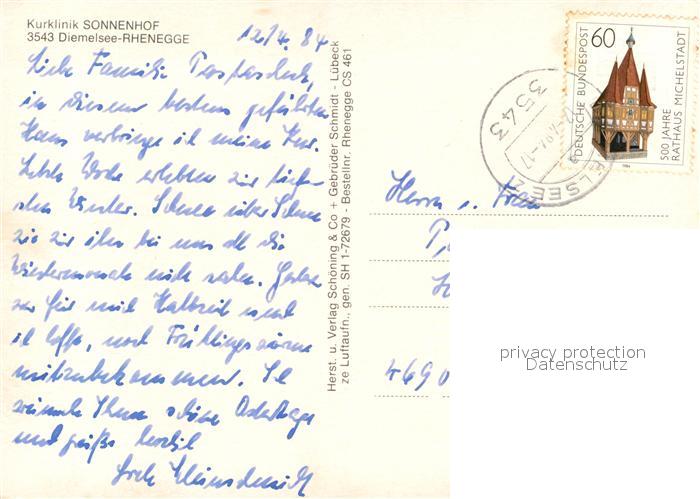 Kurklinik SONNENHOF
3543 Diemelsee-RHENEGGE
12/4. 84
Liebe Familie
in diesem bestens geführten
Haus verbringe ich meine Kur.
Letzte Woche erlebten wir tiefsten Winter. Schnee über Schnee
wie wir ihn bei uns all die
Wintermonate nicht sahen. Gestern
war für mich Halbzeit und
ich hoffe, noch Frühlingswärme
mitzubekommen. Ich
wünsche Ihnen schöne Ostertage
und grüße herzlich
Herst. u. Verlag Schöning & Co + Gebrüder Schmidt - Lübeck
ze Luftaufn., gen. SH 1-72679 - Bestellnr. Rhenegge CS 461
60
DEUTSCHE BUNDESPOST
500 JAHRE
RATHAUS MICHELSTADT
1984
3543
Herrn u. Frau
469
privacy protection
Datenschutz